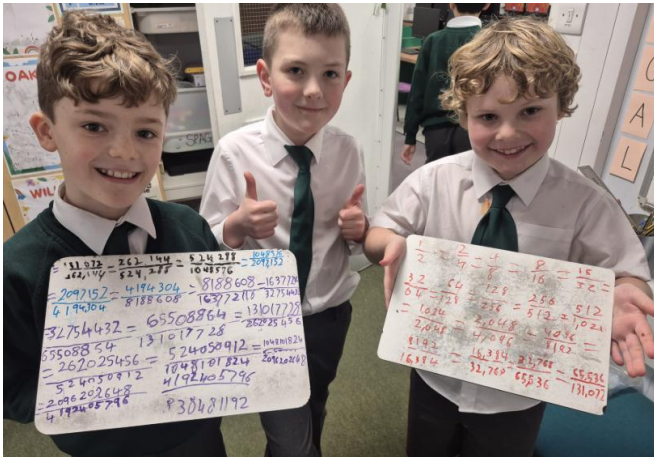 OAK
WIL
SPAG
O
A
L
= 131,072 / 262,144 = 262 144 / 524,288 = 524 288 / 1048576 = 1048576 / 2097152
= 2097152 / 4194304 = 4194304 / 8188608 = 8188608 / 16377216 = 16377216 / 32754432
= 32754432 / 65508864 = 65508864 / 131017728 = 131017728 / 262025456
= 262025456 / 524050912 = 524050912 / 1048101824 = 1048101824 / 2096202648
= 2096202648 / 4192405796
4192405796
1/2 = 2/4 = 4/8 = 8/16 = 16/32 =
32/64 = 64/128 = 128/256 = 256/512 = 512/1,024
= 1024/2,048 = 2,048/4096 = 4096/8192 =
8192/16,384 = 16,384/32,768 = 32,768/65,536 = 65,536/131,072